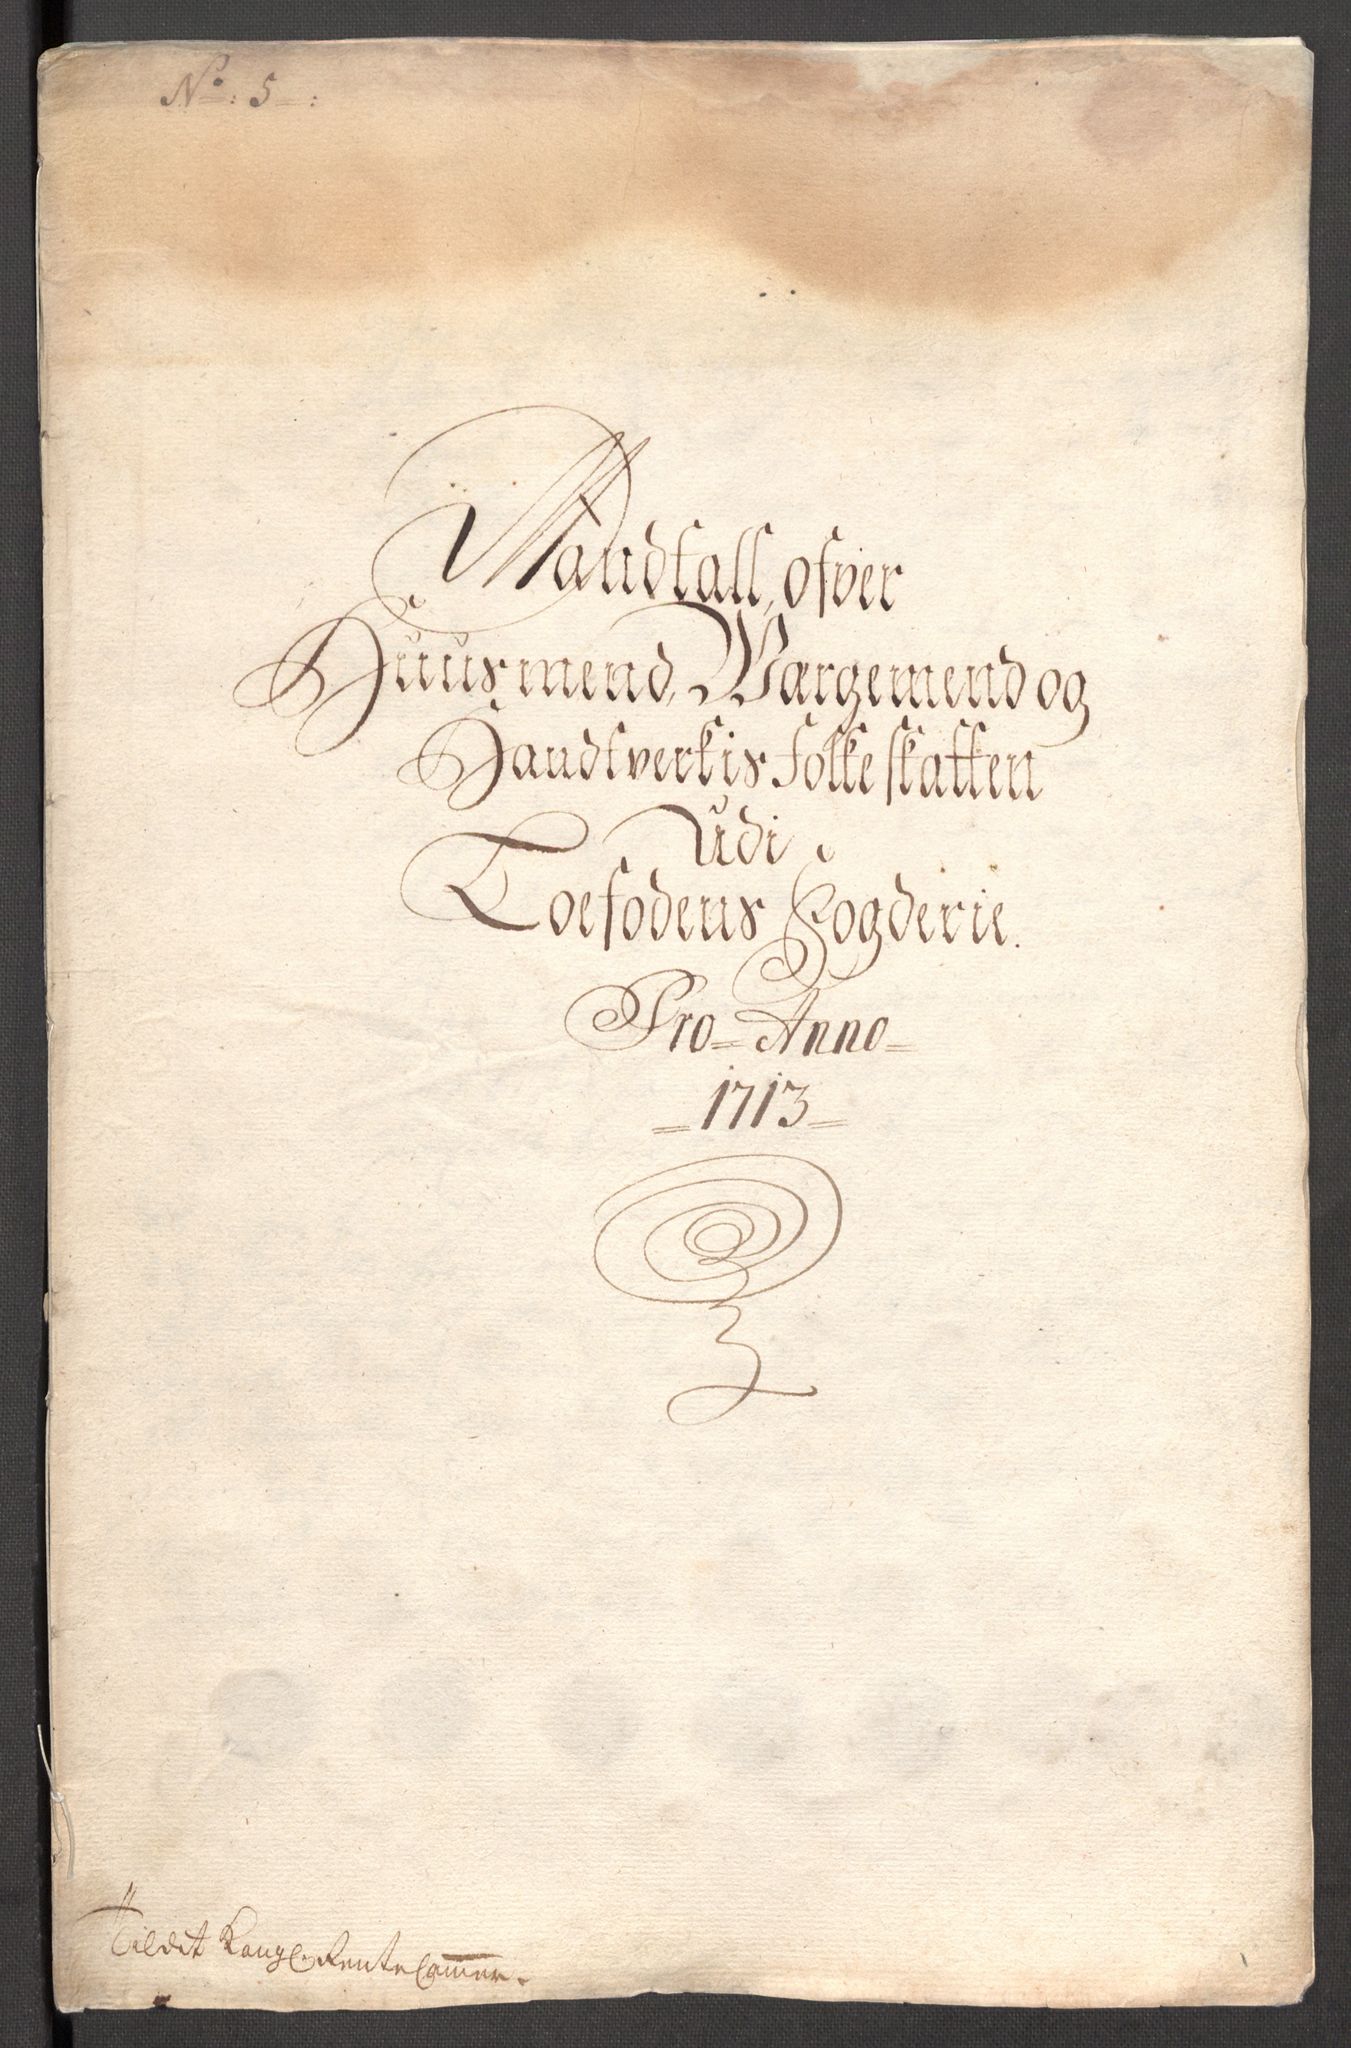 No: 5 :
Mandtall, ofver
Huusmend, Wargemend og
Handtverkis folke skatten
Udi
Toesodens Fogderie.
Pro Anno
1713
Til det Kongl. Rente Cammer.